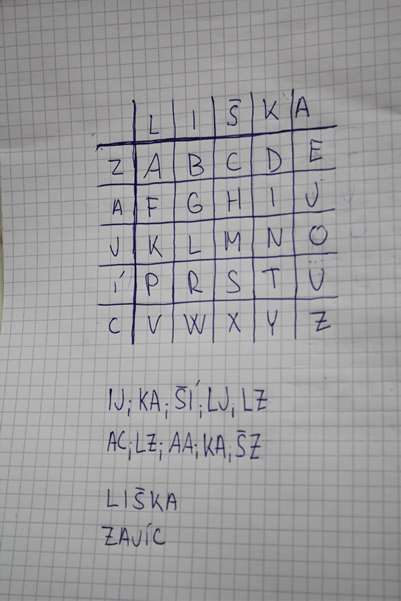 L I Š K A
Z A B C D E
A F G H I J
J K L M N O
Í P R S T U
C V W X Y Z
IJ; KA; ŠÍ; LJ; LZ
AC; LZ; AA; KA; ŠZ
LIŠKA
ZAJÍC